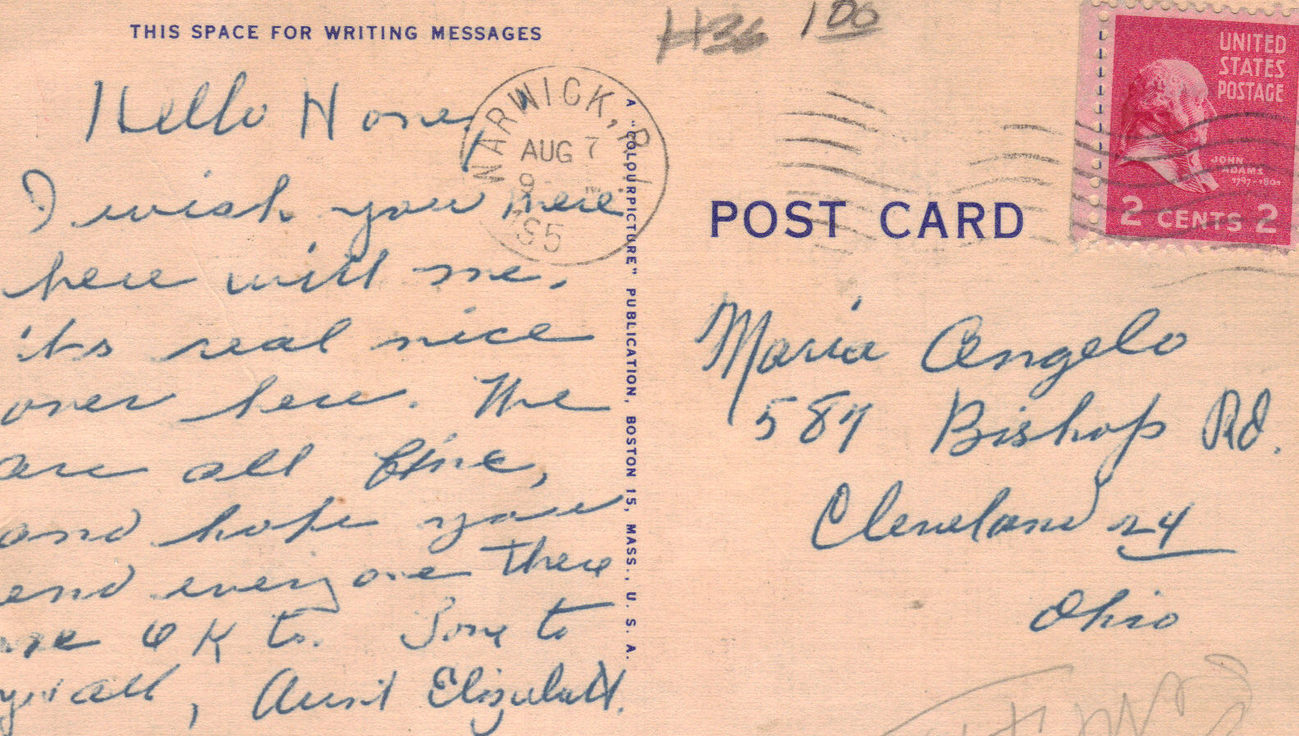 THIS SPACE FOR WRITING MESSAGES
H36 1 00
Hello Honey
I wish you were
here with me.
it's real nice
over here. We
are all fine,
and hope you
and everyone there
are OK to. Love to
you all, Aunt Elizabeth.
WARWICK, R.I.
AUG 7
9 M
55
A "COLOURPICTURE" PUBLICATION, BOSTON 15, MASS., U. S. A.
POST CARD
UNITED
STATES
POSTAGE
JOHN
ADAMS
1797-1801
2 CENTS 2
Maria Angelo
587 Bishop Rd.
Cleveland 24
Ohio